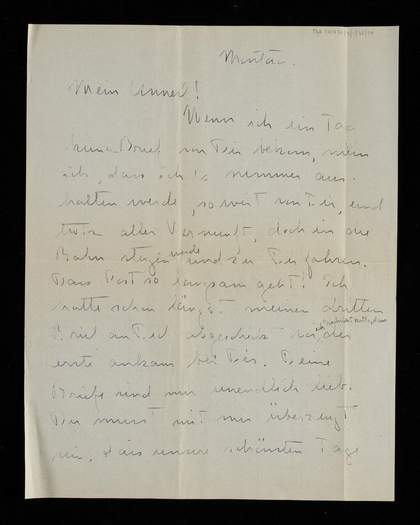 Montag.
Mein Unnerl!
Wenn ich ein Tag
keinen Brief von Dir bekam, mein
ich, dass ich's nimmer aus-
halten werde, so weit von Dir, und
trotz aller Vernunft, doch in die
Bahn steigen werde und zu Dir fahren.
Dass Post so langsam geht! Ich
hatte schon längst meinen dritten
Brief an Dich abgeschickt, als der
erste ankam bei Dir. Deine
Briefe sind mir unendlich lieb.
Du musst mit mir überzeugt
sein, dass unsere schönsten Tage